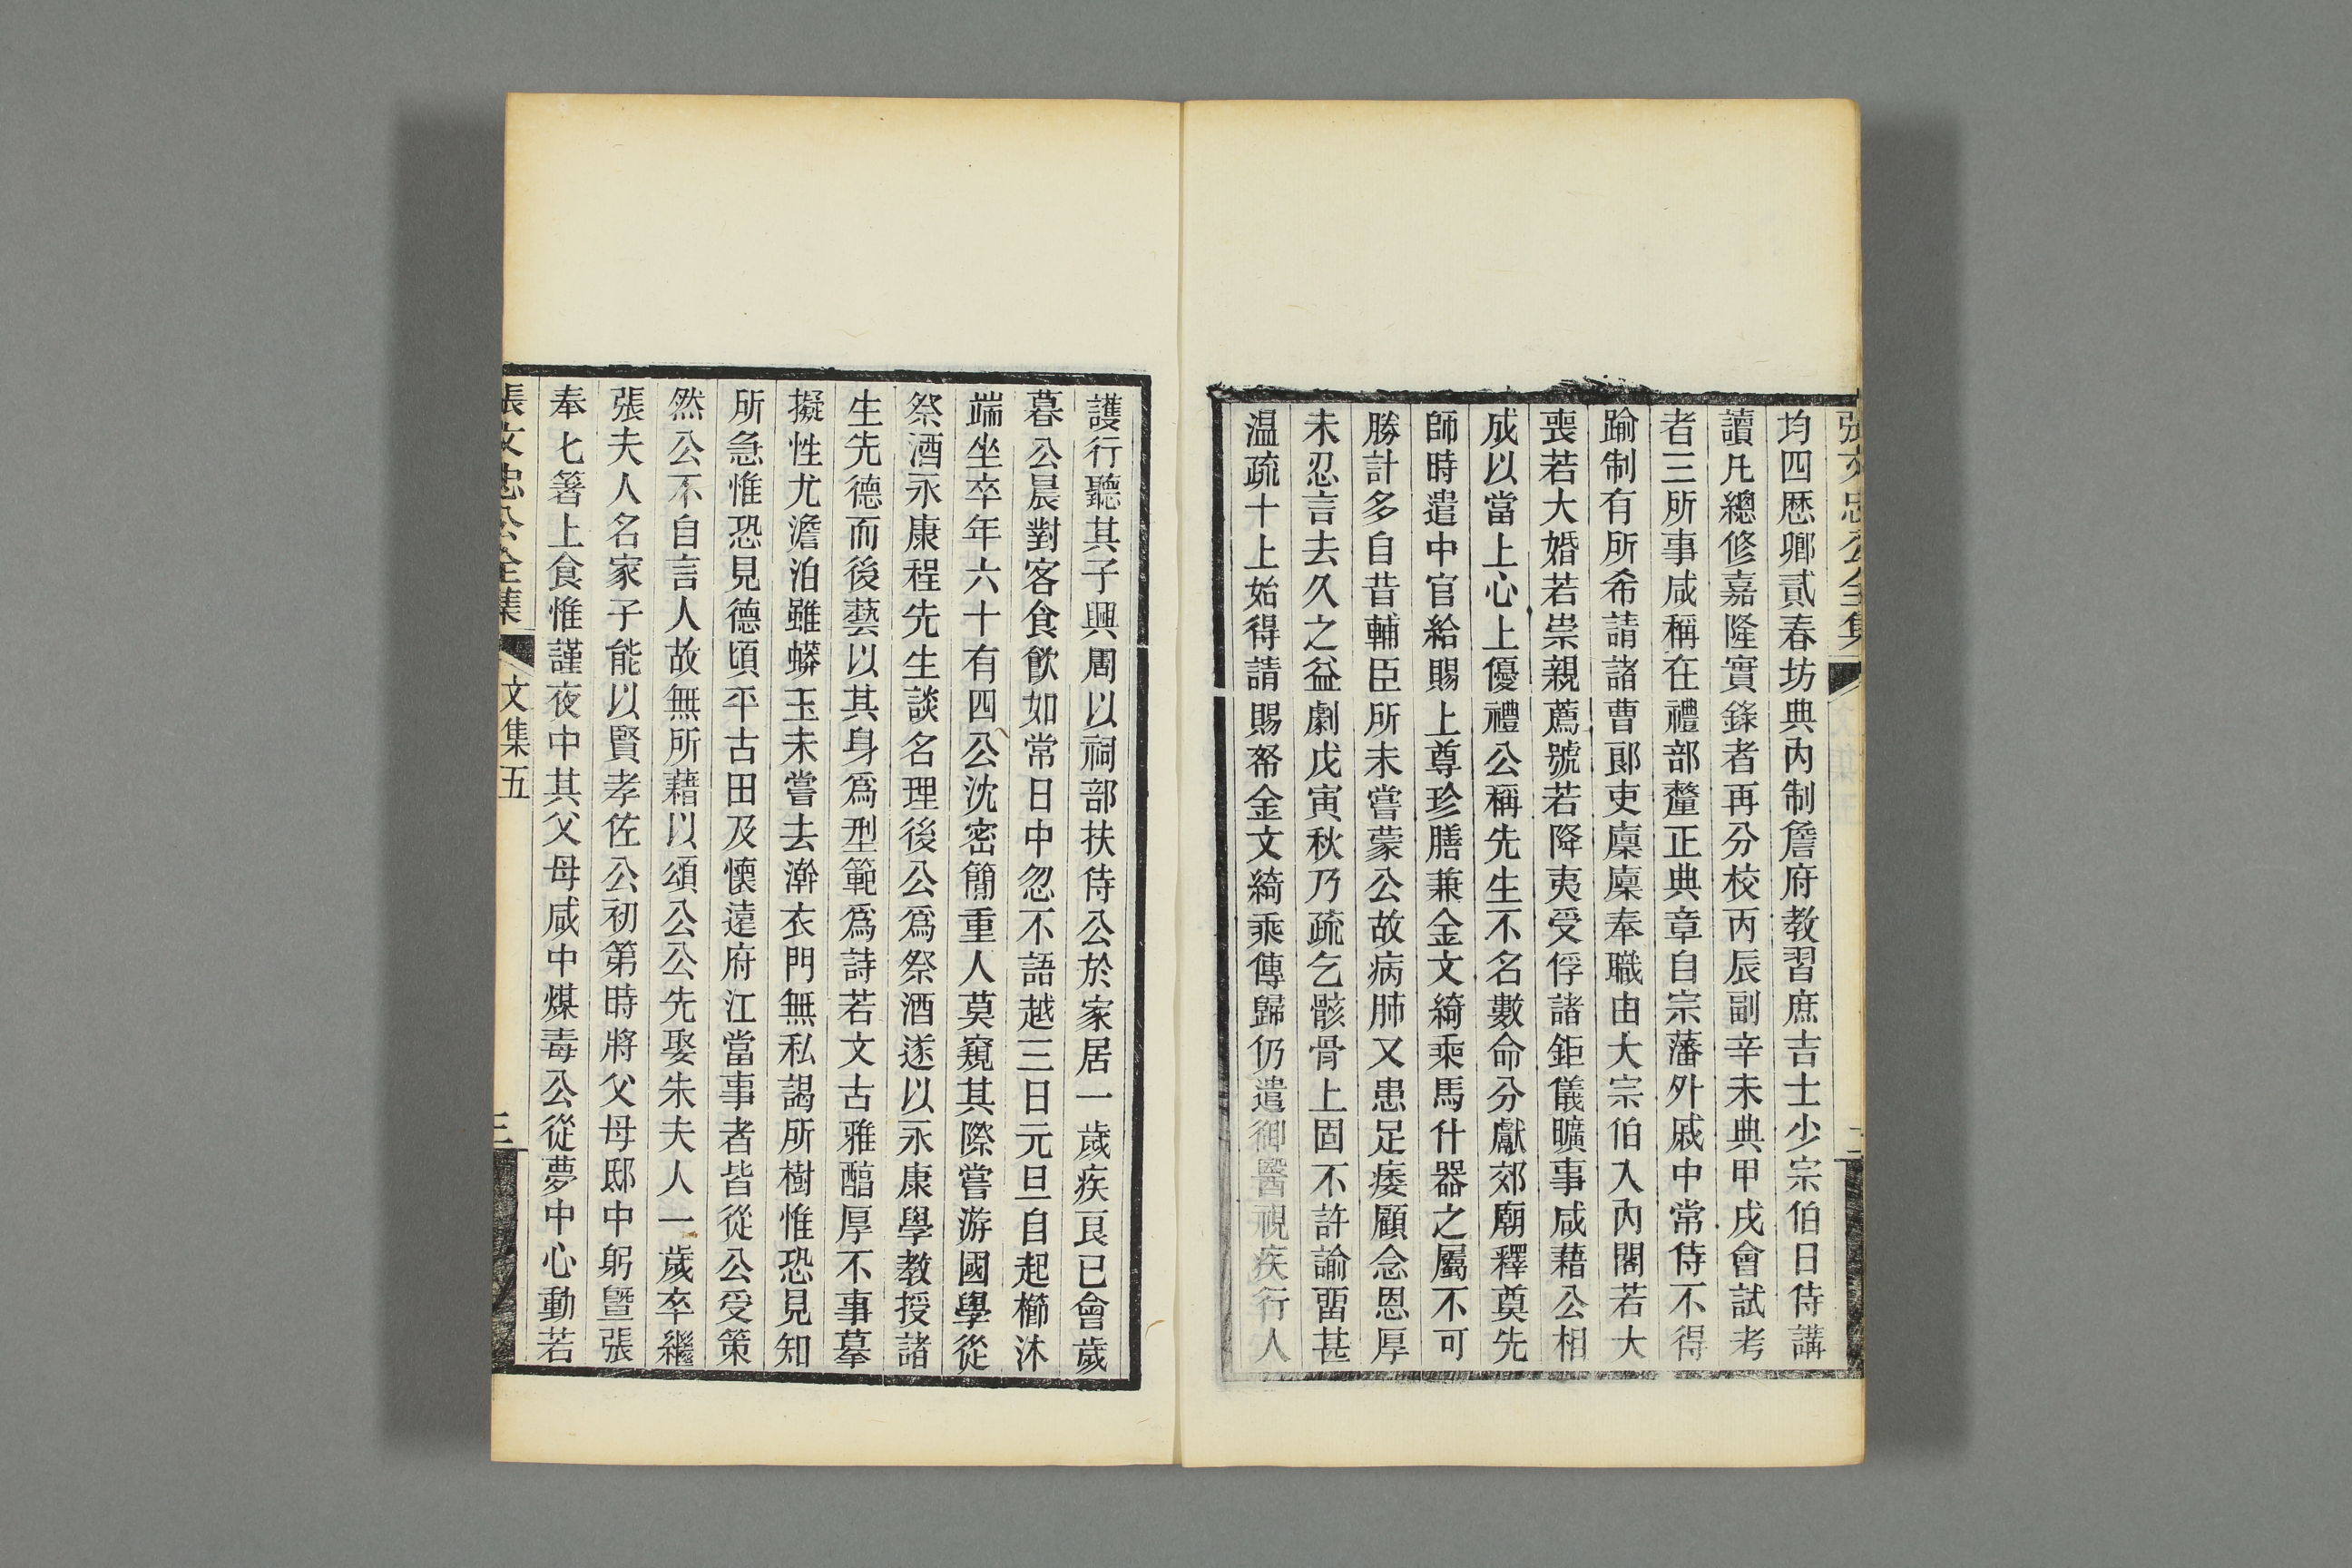 張文忠公全集
均四歷卿貳春坊典內制詹府教習庶吉士少宗伯日侍講
讀凡總修嘉隆實錄者再分校丙辰副辛未典甲戌會試考
者三所事咸稱在禮部釐正典章自宗藩外戚中常侍不得
踰制有所希請諸曹郎吏廩廩奉職由大宗伯入內閣若大
喪若大婚若崇親薦號若降夷受俘諸鉅儀曠事咸藉公相
成以當上心上優禮公稱先生不名數命分獻郊廟釋奠先
師時遣中官給賜上尊珍膳兼金文綺乘馬什器之屬不可
勝計多自昔輔臣所未嘗蒙公故病肺又患足痿顧念恩厚
未忍言去久之益劇戊寅秋乃疏乞骸骨上固不許諭畱甚
温疏十上始得請賜帑金文綺乘傳歸仍遣御醫視疾行人
護行聽其子興周以祠部扶侍公於家居一歲疾良已會歲
暮公晨對客食飲如常日中忽不語越三日元旦自起櫛沐
端坐卒年六十有四公沈密簡重人莫窺其際嘗游國學從
祭酒永康程先生談名理後公爲祭酒遂以永康學教授諸
生先德而後藝以其身爲型範爲詩若文古雅醞厚不事摹
擬性尤澹泊雖蟒玉未嘗去澣衣門無私謁所樹惟恐見知
所急惟恐見德頃平古田及懷遠府江當事者皆從公受策
然公不自言人故無所藉以頌公公先娶朱夫人一歲卒繼
張夫人名家子能以賢孝佐公初第時將父母邸中躬曁張
奉匕箸上食惟謹夜中其父母咸中煤毒公從夢中心動若
張文忠公全集
文集五
三